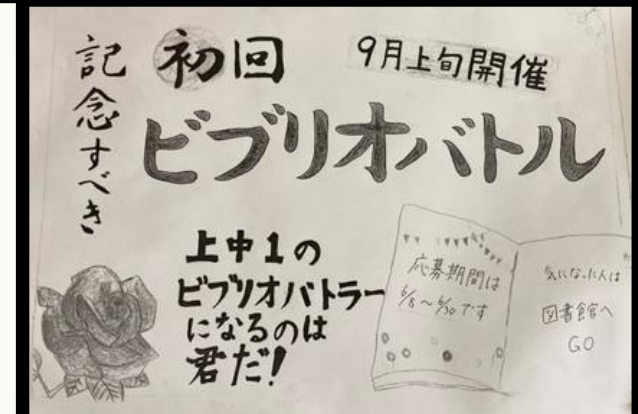 記念すべき
初回
9月上旬開催
ビブリオバトル
上中1の
ビブリオバトラー
になるのは
君だ!
応募期間は
6/8〜6/30です
気になった人は
図書館へ
GO